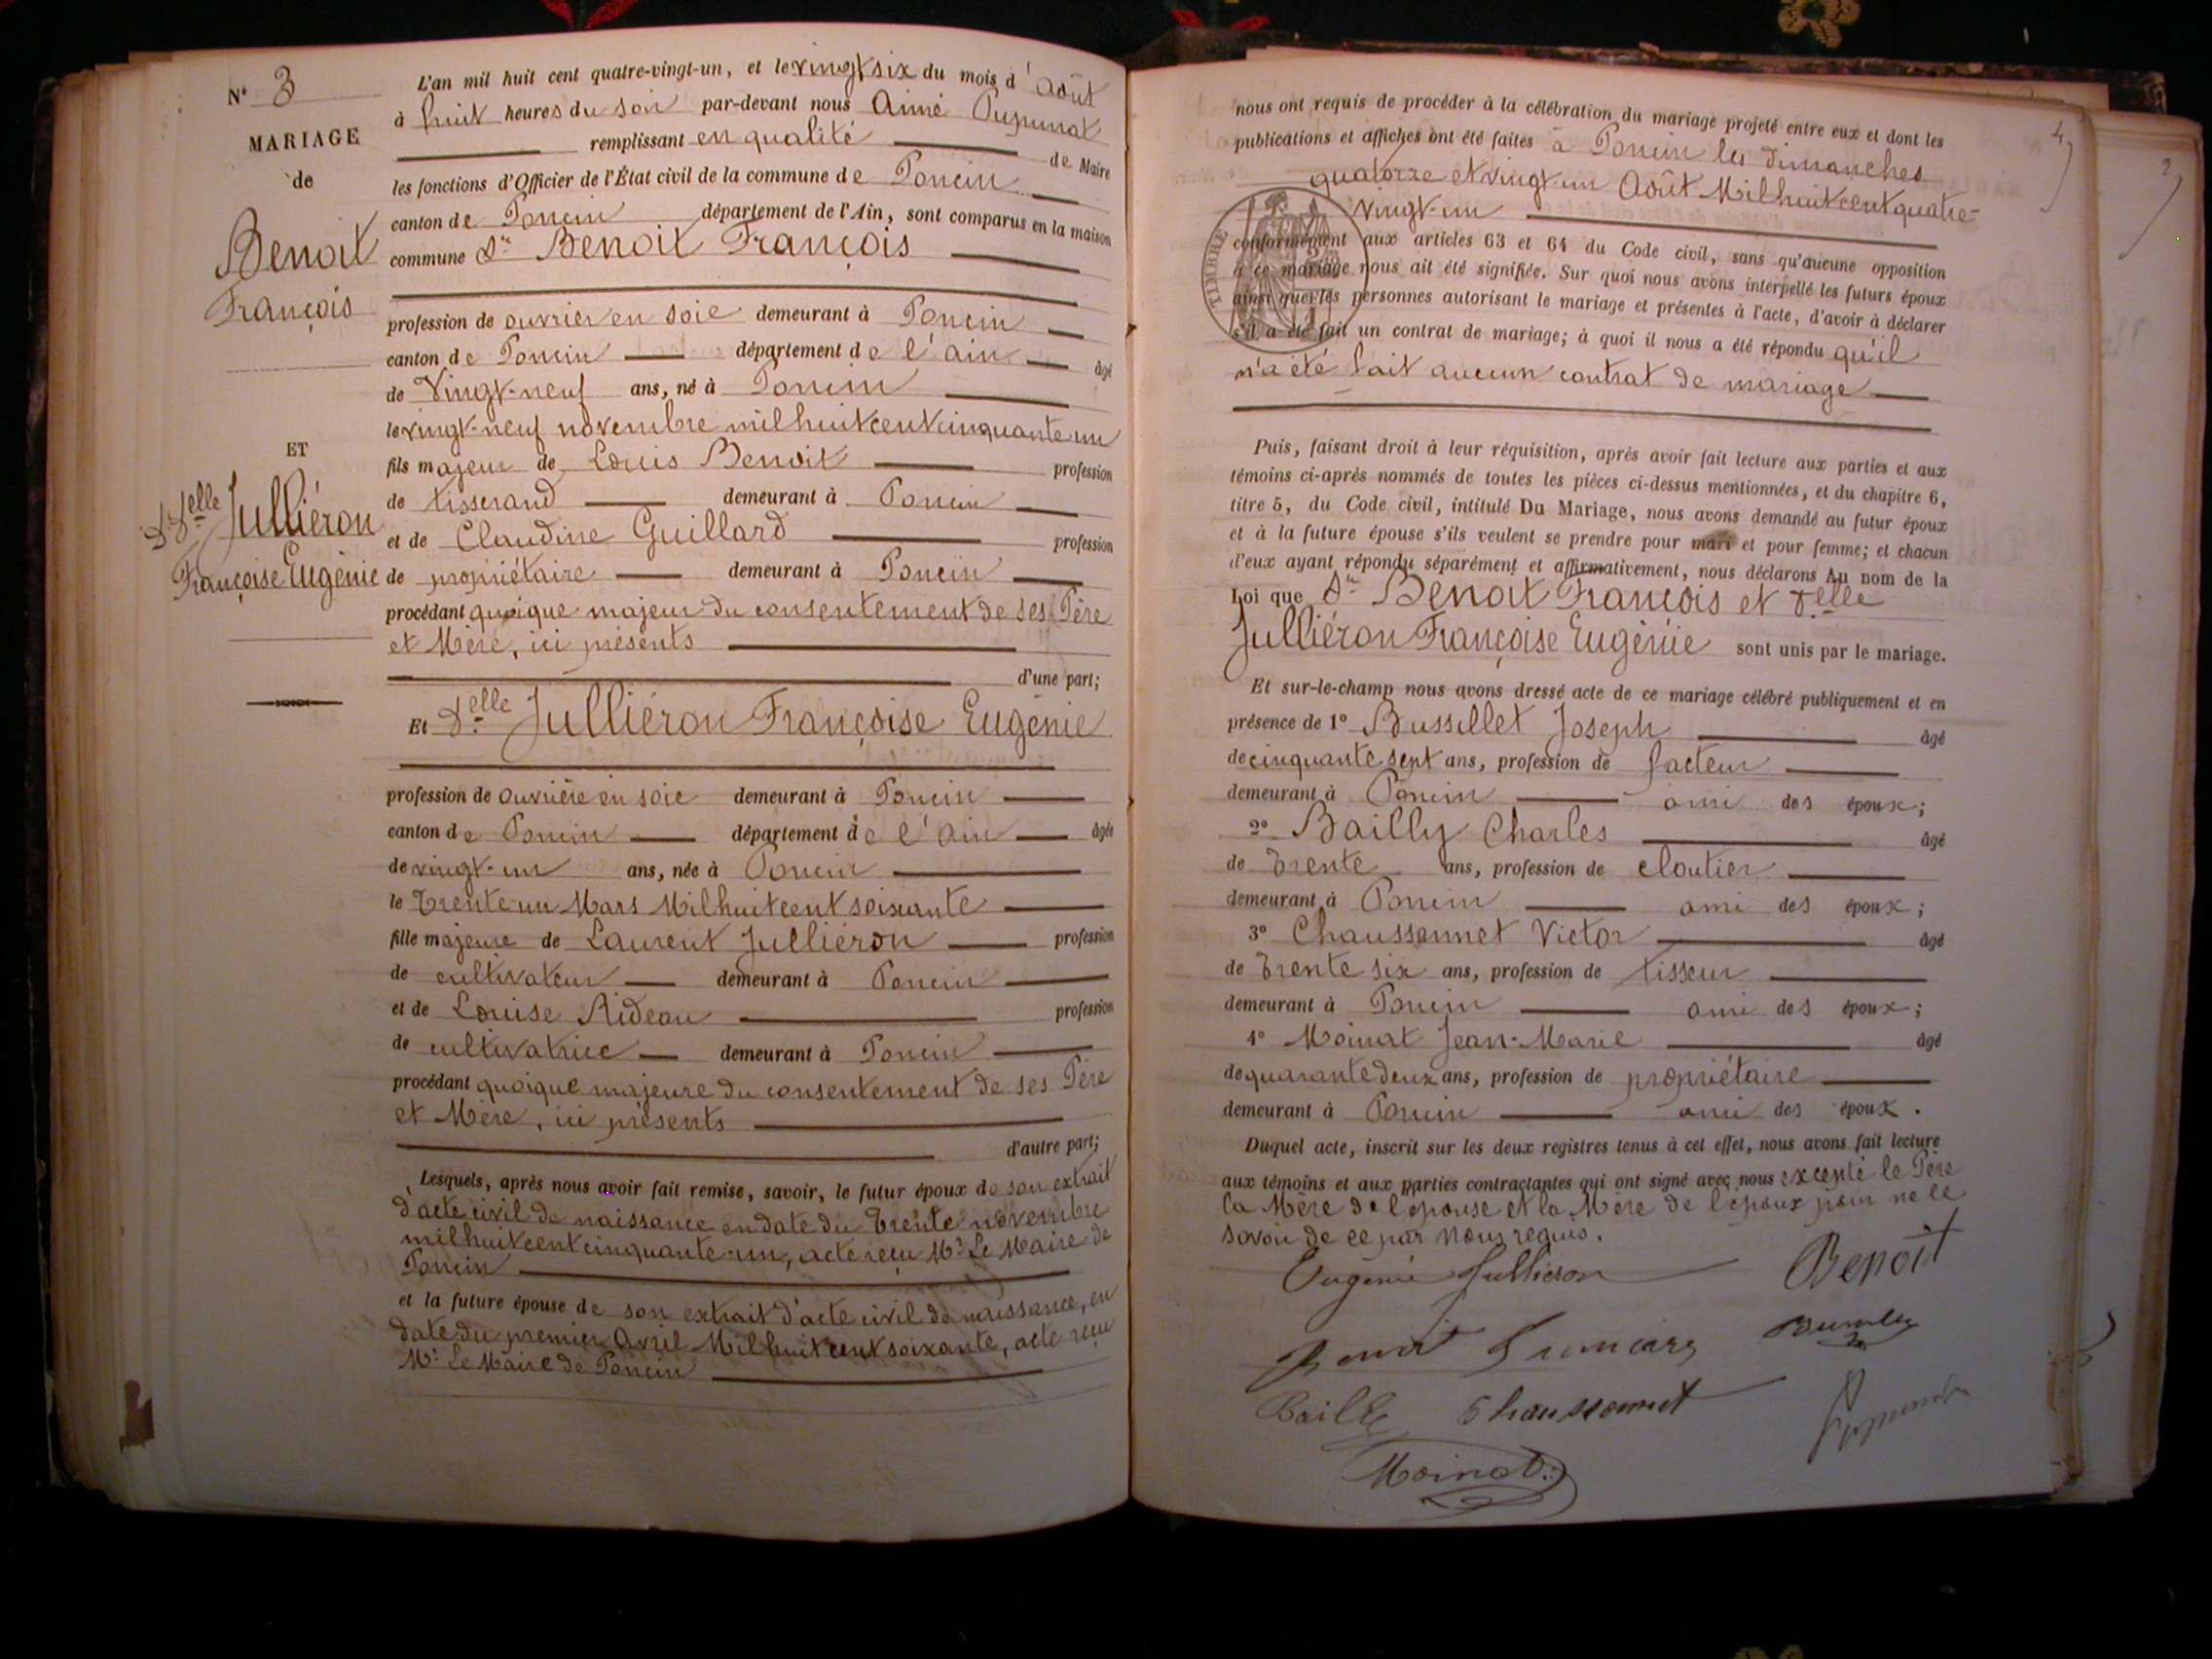 N° 3
MARIAGE
de
Benoit
François
ET
Delle Julliéron
Françoise Eugènie
L'an mil huit cent quatre-vingt-un, et le vingt six du mois d'Août
à huit heures du soir par-devant nous Aimé Pupunat
remplissant en qualité de Maire
les fonctions d'Officier de l'État civil de la commune de Poncin
canton de Poncin département de l'Ain, sont comparus en la maison
commune Sr Benoit François
profession de ouvrier en soie demeurant à Poncin
canton de Poncin département de l'ain âgé
de Vingt-neuf ans, né à Poncin
le vingt-neuf novembre mil huit cent cinquante un
fils majeur de Louis Benoit profession
de tisserand demeurant à Poncin
et de Claudine Guillard profession
de propriétaire demeurant à Poncin
procédant quoique majeur du consentement de ses Père
et Mère, ici présents
d'une part;
Et Delle Julliéron Françoise Eugènie
profession de ouvrière en soie demeurant à Poncin
canton de Poncin département de l'ain âgée
de vingt-un ans, née à Poncin
le Trente un Mars Mil huit cent soixante
fille majeure de Laurent Julliéron profession
de cultivateur demeurant à Poncin
et de Louise Rideau profession
de cultivatrice demeurant à Poncin
procédant quoique majeure du consentement de ses Père
et Mère, ici présents
d'autre part;
Lesquels, après nous avoir fait remise, savoir, le futur époux de son extrait
d'acte civil de naissance en date du Trente novembre
mil huit cent cinquante-un, acte reçu Mr Le Maire de
Poncin
et la future épouse de son extrait d'acte civil de naissance, en
date du premier Avril Mil huit cent soixante, acte reçu
Mr Le Maire de Poncin
nous ont requis de procéder à la célébration du mariage projeté entre eux et dont les
publications et affiches ont été faites à Poncin les dimanches
quatorze et vingt un Août Mil huit cent quatre-
vingt-un
TIMBRE
conformément aux articles 63 et 64 du Code civil, sans qu'aucune opposition
à ce mariage nous ait été signifiée. Sur quoi nous avons interpellé les futurs époux
ainsi que les personnes autorisant le mariage et présentes à l'acte, d'avoir à déclarer
s'il a été fait un contrat de mariage; à quoi il nous a été répondu qu'il
n'a été fait aucun contrat de mariage
Puis, faisant droit à leur réquisition, après avoir fait lecture aux parties et aux
témoins ci-après nommés de toutes les pièces ci-dessus mentionnées, et du chapitre 6,
titre 5, du Code civil, intitulé Du Mariage, nous avons demandé au futur époux
et à la future épouse s'ils veulent se prendre pour mari et pour femme; et chacun
d'eux ayant répondu séparément et affirmativement, nous déclarons Au nom de la
Loi que Sr Benoit François et Delle
Julliéron Françoise Eugènie sont unis par le mariage.
Et sur-le-champ nous avons dressé acte de ce mariage célébré publiquement et en
présence de 1° Bussillet Joseph âgé
de cinquante sept ans, profession de facteur
demeurant à Poncin ami des époux;
2° Bailly Charles âgé
de Trente ans, profession de cloutier
demeurant à Poncin ami des époux;
3° Chaussonnet Victor âgé
de Trente six ans, profession de tisseur
demeurant à Poncin ami des époux;
4° Moinat Jean-Marie âgé
de quarante deux ans, profession de propriétaire
demeurant à Poncin ami des époux.
Duquel acte, inscrit sur les deux registres tenus à cet effet, nous avons fait lecture
aux témoins et aux parties contractantes qui ont signé avec nous excepté le Père
la Mère de l'épouse et la Mère de l'époux pour ne le
savoir de ce par nous requis.
Eugénie Jullieron Benoît
Benoit Francois
Bailly Chaussonnet
Moinat